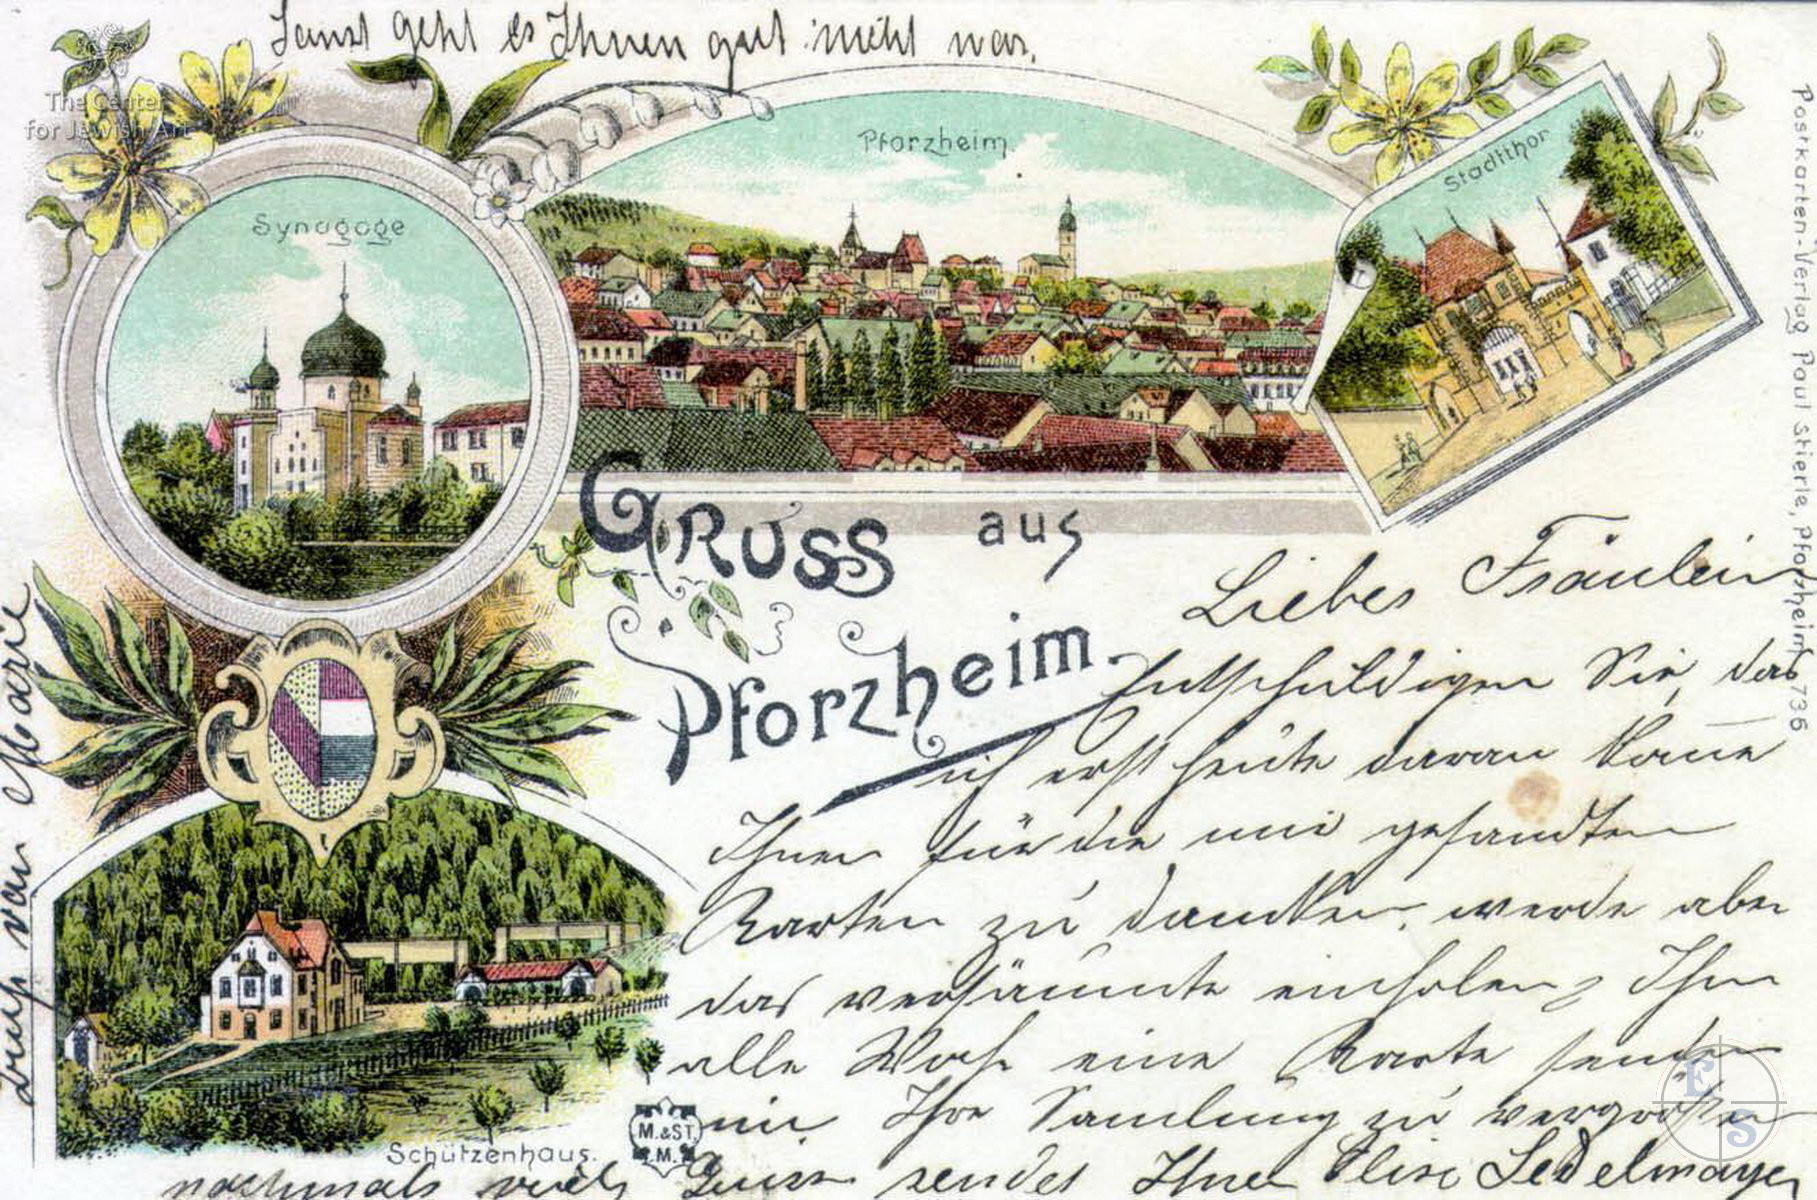 Sonst geht es Ihnen gut nicht war.
The Center
for Jewish Art
Synagoge
Pforzheim.
Stadtthor
Postkarten-Verlag Paul Stierle, Pforzheim 736
Gruss aus
Pforzheim.
Liebes Fräulein
Entschuldigen Sie, das
ich erst heute daran kome
Ihnen für die mir gesandten
Karten zu danken, werde aber
das versäumte einholen, Ihn
alle Woch eine Karte senden
um Ihre Samlung zu vergrößern
Gruss sendet Ihnen Elise Sedelmayer
nochmals viele
Gruß von Marie
Schützenhaus.
M.&ST.
M.
E
S